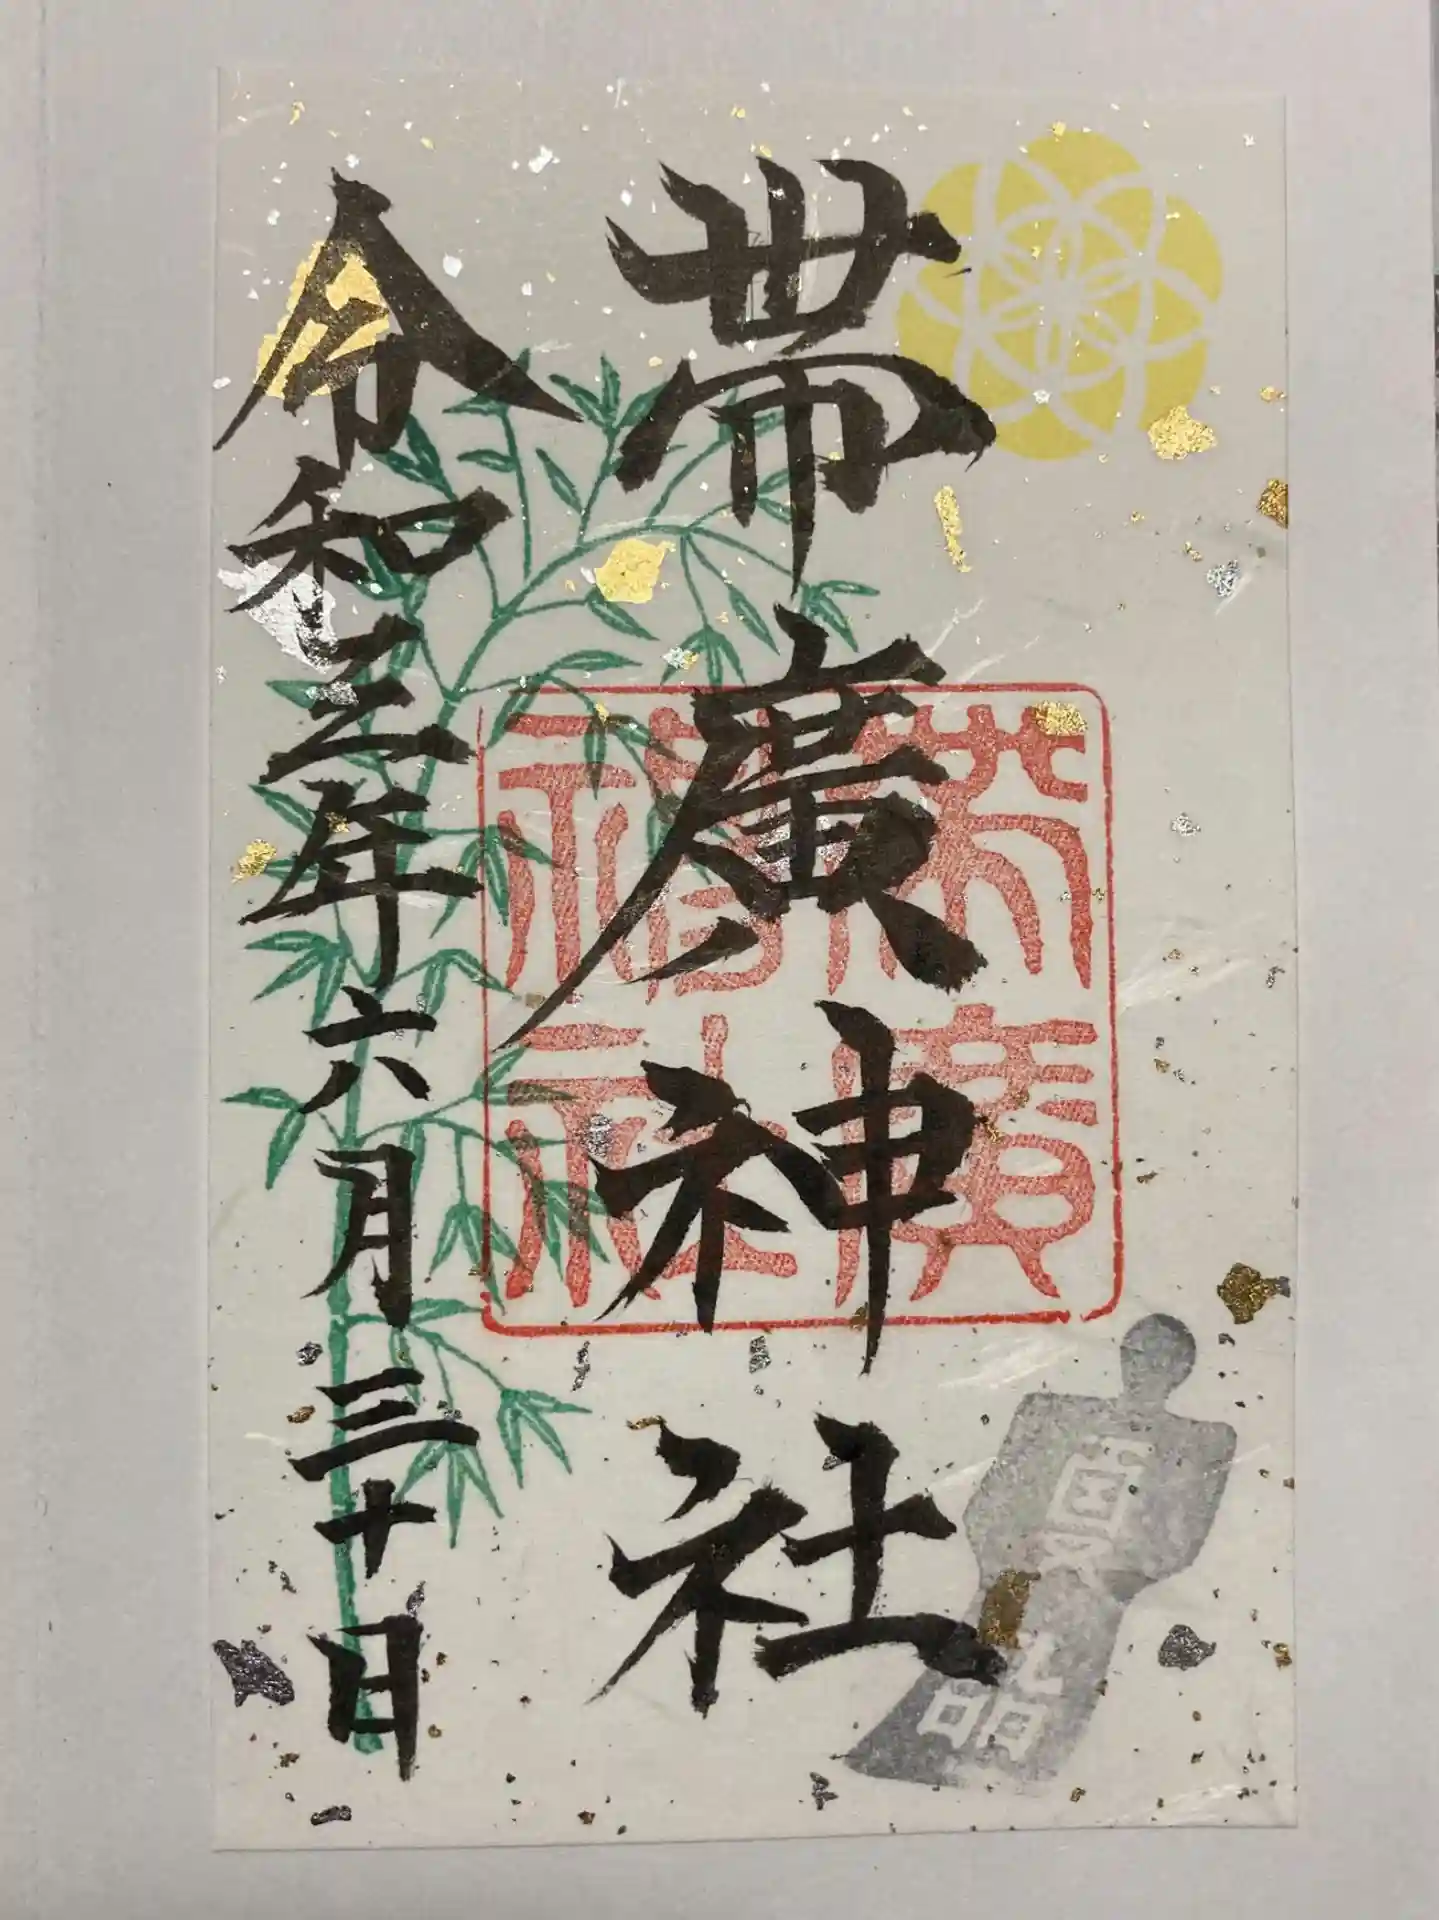 夏詣
帯廣神社
帯廣
神社
令和三年六月三十日